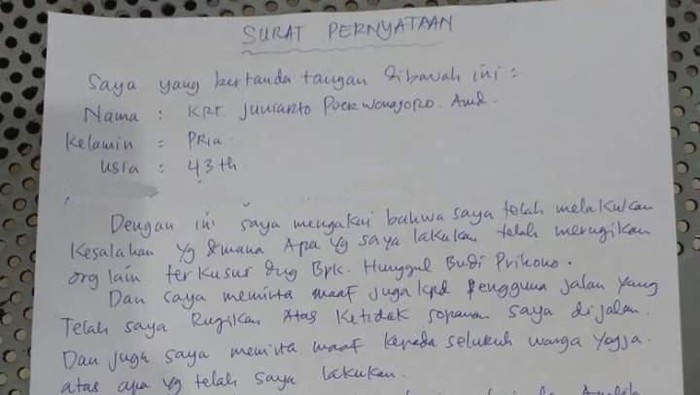 SURAT PERNYATAAN
Saya yang bertanda tangan dibawah ini :
Nama : KRT Junianto Poerwonagoro. Amd.
Kelamin : PRIA.
Usia : 43 th
Dengan ini saya mengakui bahwa saya telah melakukan
Kesalahan yg dmana Apa yg saya lakukan telah merugikan
org lain terkusus dng Bpk. Hunggul Budi Prihono.
Dan saya meminta maaf juga kpd Pengguna jalan yang
Telah saya Rugikan Atas Ketidak sopanan saya dijalan.
Dan juga saya meminta maaf kepada seluruh warga Yogja.
atas apa yg telah saya lakukan.